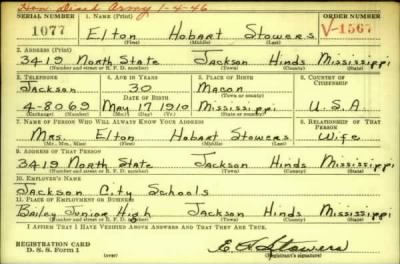 Hon. Disch Army 1-4-46
SERIAL NUMBER 1. NAME (Print) ORDER NUMBER
1077 Elton Hobart Stowers V-1567
(First) (Middle) (Last)
2. ADDRESS (Print)
3419 North State Jackson Hinds Mississippi
(Number and street or R. F. D. number) (Town) (County) (State)
3. TELEPHONE 4. AGE IN YEARS 5. PLACE OF BIRTH 6. COUNTRY OF CITIZENSHIP
Jackson 30 Macon
DATE OF BIRTH
4-8069 May 17 1910 Mississippi U.S.A.
(Exchange) (Number) (Mo.) (Day) (Yr.) (State or country)
7. NAME OF PERSON WHO WILL ALWAYS KNOW YOUR ADDRESS 8. RELATIONSHIP OF THAT PERSON
Mrs. Elton Hobart Stowers Wife
(Mr., Mrs., Miss) (First) (Middle) (Last)
9. ADDRESS OF THAT PERSON
3419 North State Jackson Hinds Mississippi
(Number and street or R. F. D. number) (Town) (County) (State)
10. EMPLOYER'S NAME
Jackson City Schools
11. PLACE OF EMPLOYMENT OR BUSINESS
Bailey Junior High Jackson Hinds Mississippi
(Number and street or R. F. D. number) (Town) (County) (State)
I AFFIRM THAT I HAVE VERIFIED ABOVE ANSWERS AND THAT THEY ARE TRUE.
REGISTRATION CARD
D. S. S. Form 1 (over) E. H. Stowers
(Registrant's signature)